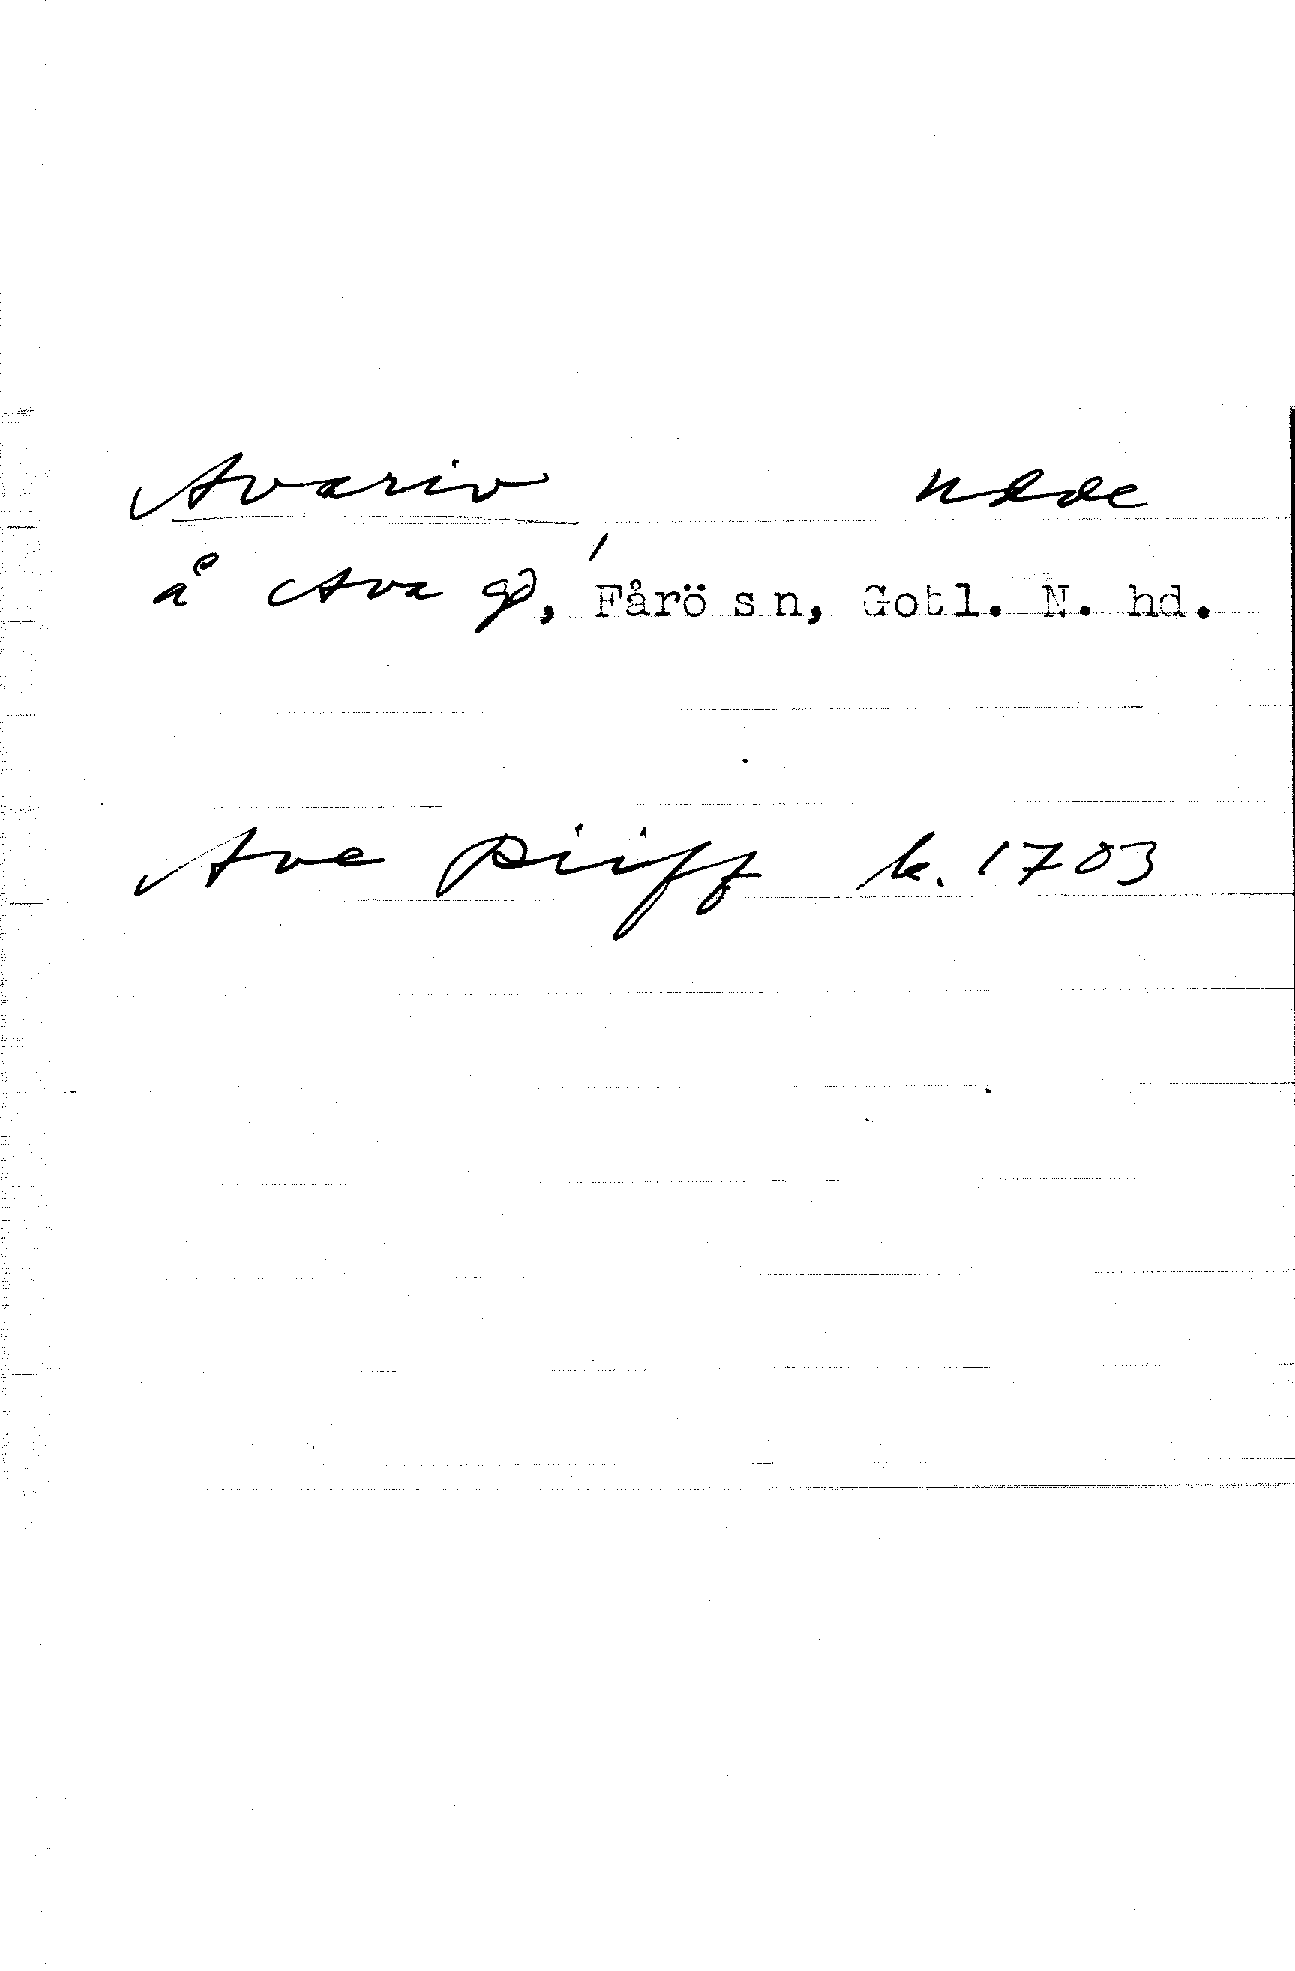 Avariv udde
å Ava gd, Fårö sn, Gotl. N. hd.
Ave Riiff k. 1703